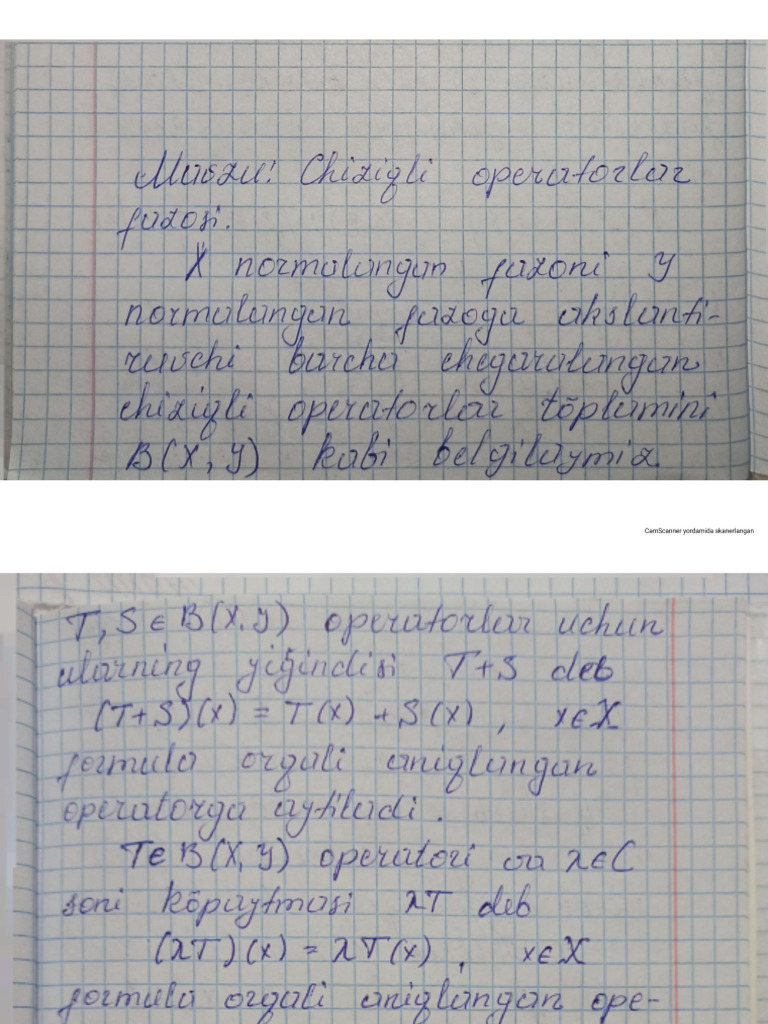 Mavzu: Chiziqli operatorlar
fazosi.
X normalangan fazoni Y
normalangan fazoga akslanti-
ruvchi barcha chegaralangan
chiziqli operatorlar tõplamini
B(X, Y) kabi belgilaymiz
CamScanner yordamida skanerlangan
T, S ∈ B(X, Y) operatorlar uchun
ularning yiğindisi T+S deb
(T+S)(x) = T(x) + S(x), x∈X
formula orqali aniqlangan
operatorga aytiladi.
T∈ B(X, Y) operatori va λ∈C
soni kõpaytmasi λT deb
(λT)(x) = λT(x), x∈X
formula orqali aniqlangan ope-